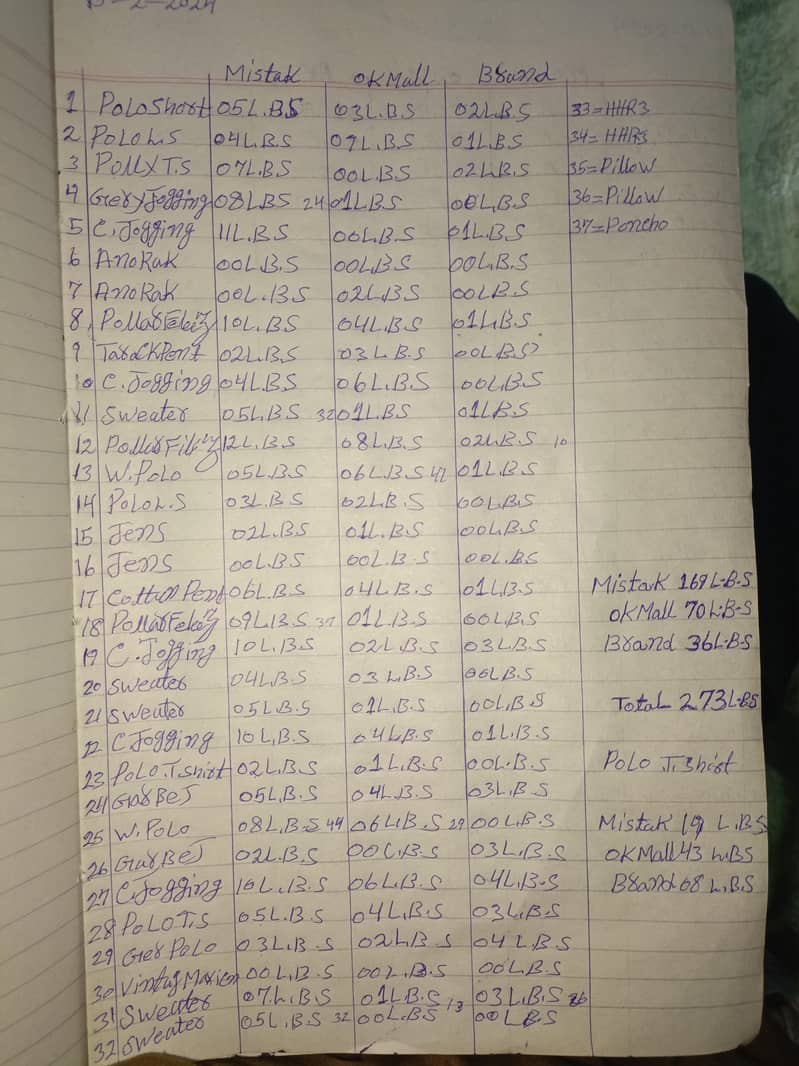 13-2-2024
Mistak OKMall Brand
1 Polo Short 05L.B.S 03L.B.S 02L.B.S 33=HHR3
2 Polo L.S 04L.B.S 09L.B.S 01L.B.S 34=HHR3
3 Polly T.S 07L.B.S 00L.B.S 02L.B.S 35=Pillow
4 Grery Jogging 08LBS 24 01LBS 00L.B.S 36=Pillow
5 C. Jogging 11L.B.S 00L.B.S 01L.B.S 37=Poncho
6 AnoRak 00L.B.S 00LBS 00L.B.S
7 AnoRak 00L.BS 02LBS 00LBS
8 Pollar Felez 10L.BS 04L.B.S 01L.B.S
9 TarackPent 02L.B.S 03L.B.S 00L.B.S
10 C. Jogging 04L.B.S 06L.B.S 00L.B.S
11 Sweater 05L.BS 32 01L.BS 01LBS
12 Pollar Filez 12L.BS 08L.B.S 02L.B.S 10
13 W. Polo 05L.BS 06L.B.S 42 01L.B.S
14 Polo L.S 03L.B.S 02L.B.S 00L.B.S
15 Jens 02L.B.S 01L.B.S 00L.B.S
16 Jens 00L.BS 00L.B.S 00L.BS
17 Cottun Pent 06L.B.S 04L.B.S 01L.B.S Mistak 169 L.B.S
18 Pollar Felez 09LBS 37 01L.B.S 00L.B.S OKMall 70L.B-S
19 C. Jogging 10L.B.S 02L.B.S 03L.B.S Brand 36L.B-S
20 Sweater 04L.B.S 03L.B.S 00L.B.S
21 Sweater 05L.B.S 01L.B.S 00L.B.S Total 273L.BS
22 C Jogging 10L.B.S 04LB.S 01L.B.S
23 Polo T.shirt 02L.B.S 01L.B.S 00L.B.S Polo T.Shirt
24 GarBeJ 05L.B.S 04L.B.S 03L.B.S
25 W. Polo 08L.B.S 44 06L.B.S 29 00L.B.S Mistak 19 L.BS
26 GarBeJ 02L.B.S 00L.B.S 03L.B.S OKMall 43 L.BS
27 C. Jogging 10L.B.S 06L.B.S 04L.B.S Brand 08 L.B.S
28 Polo T.S 05L.B.S 04L.B.S 03L.B.S
29 Grer Polo 03L.B.S 02L.B.S 04L.B.S
30 Vintag Maxican 00L.B.S 00L.B.S 00L.B.S
31 Sweater 07.L.B.S 01L.B.S 13 03L.B.S 26
32 Sweater 05L.B.S 32 00L.B.S 00LB.S